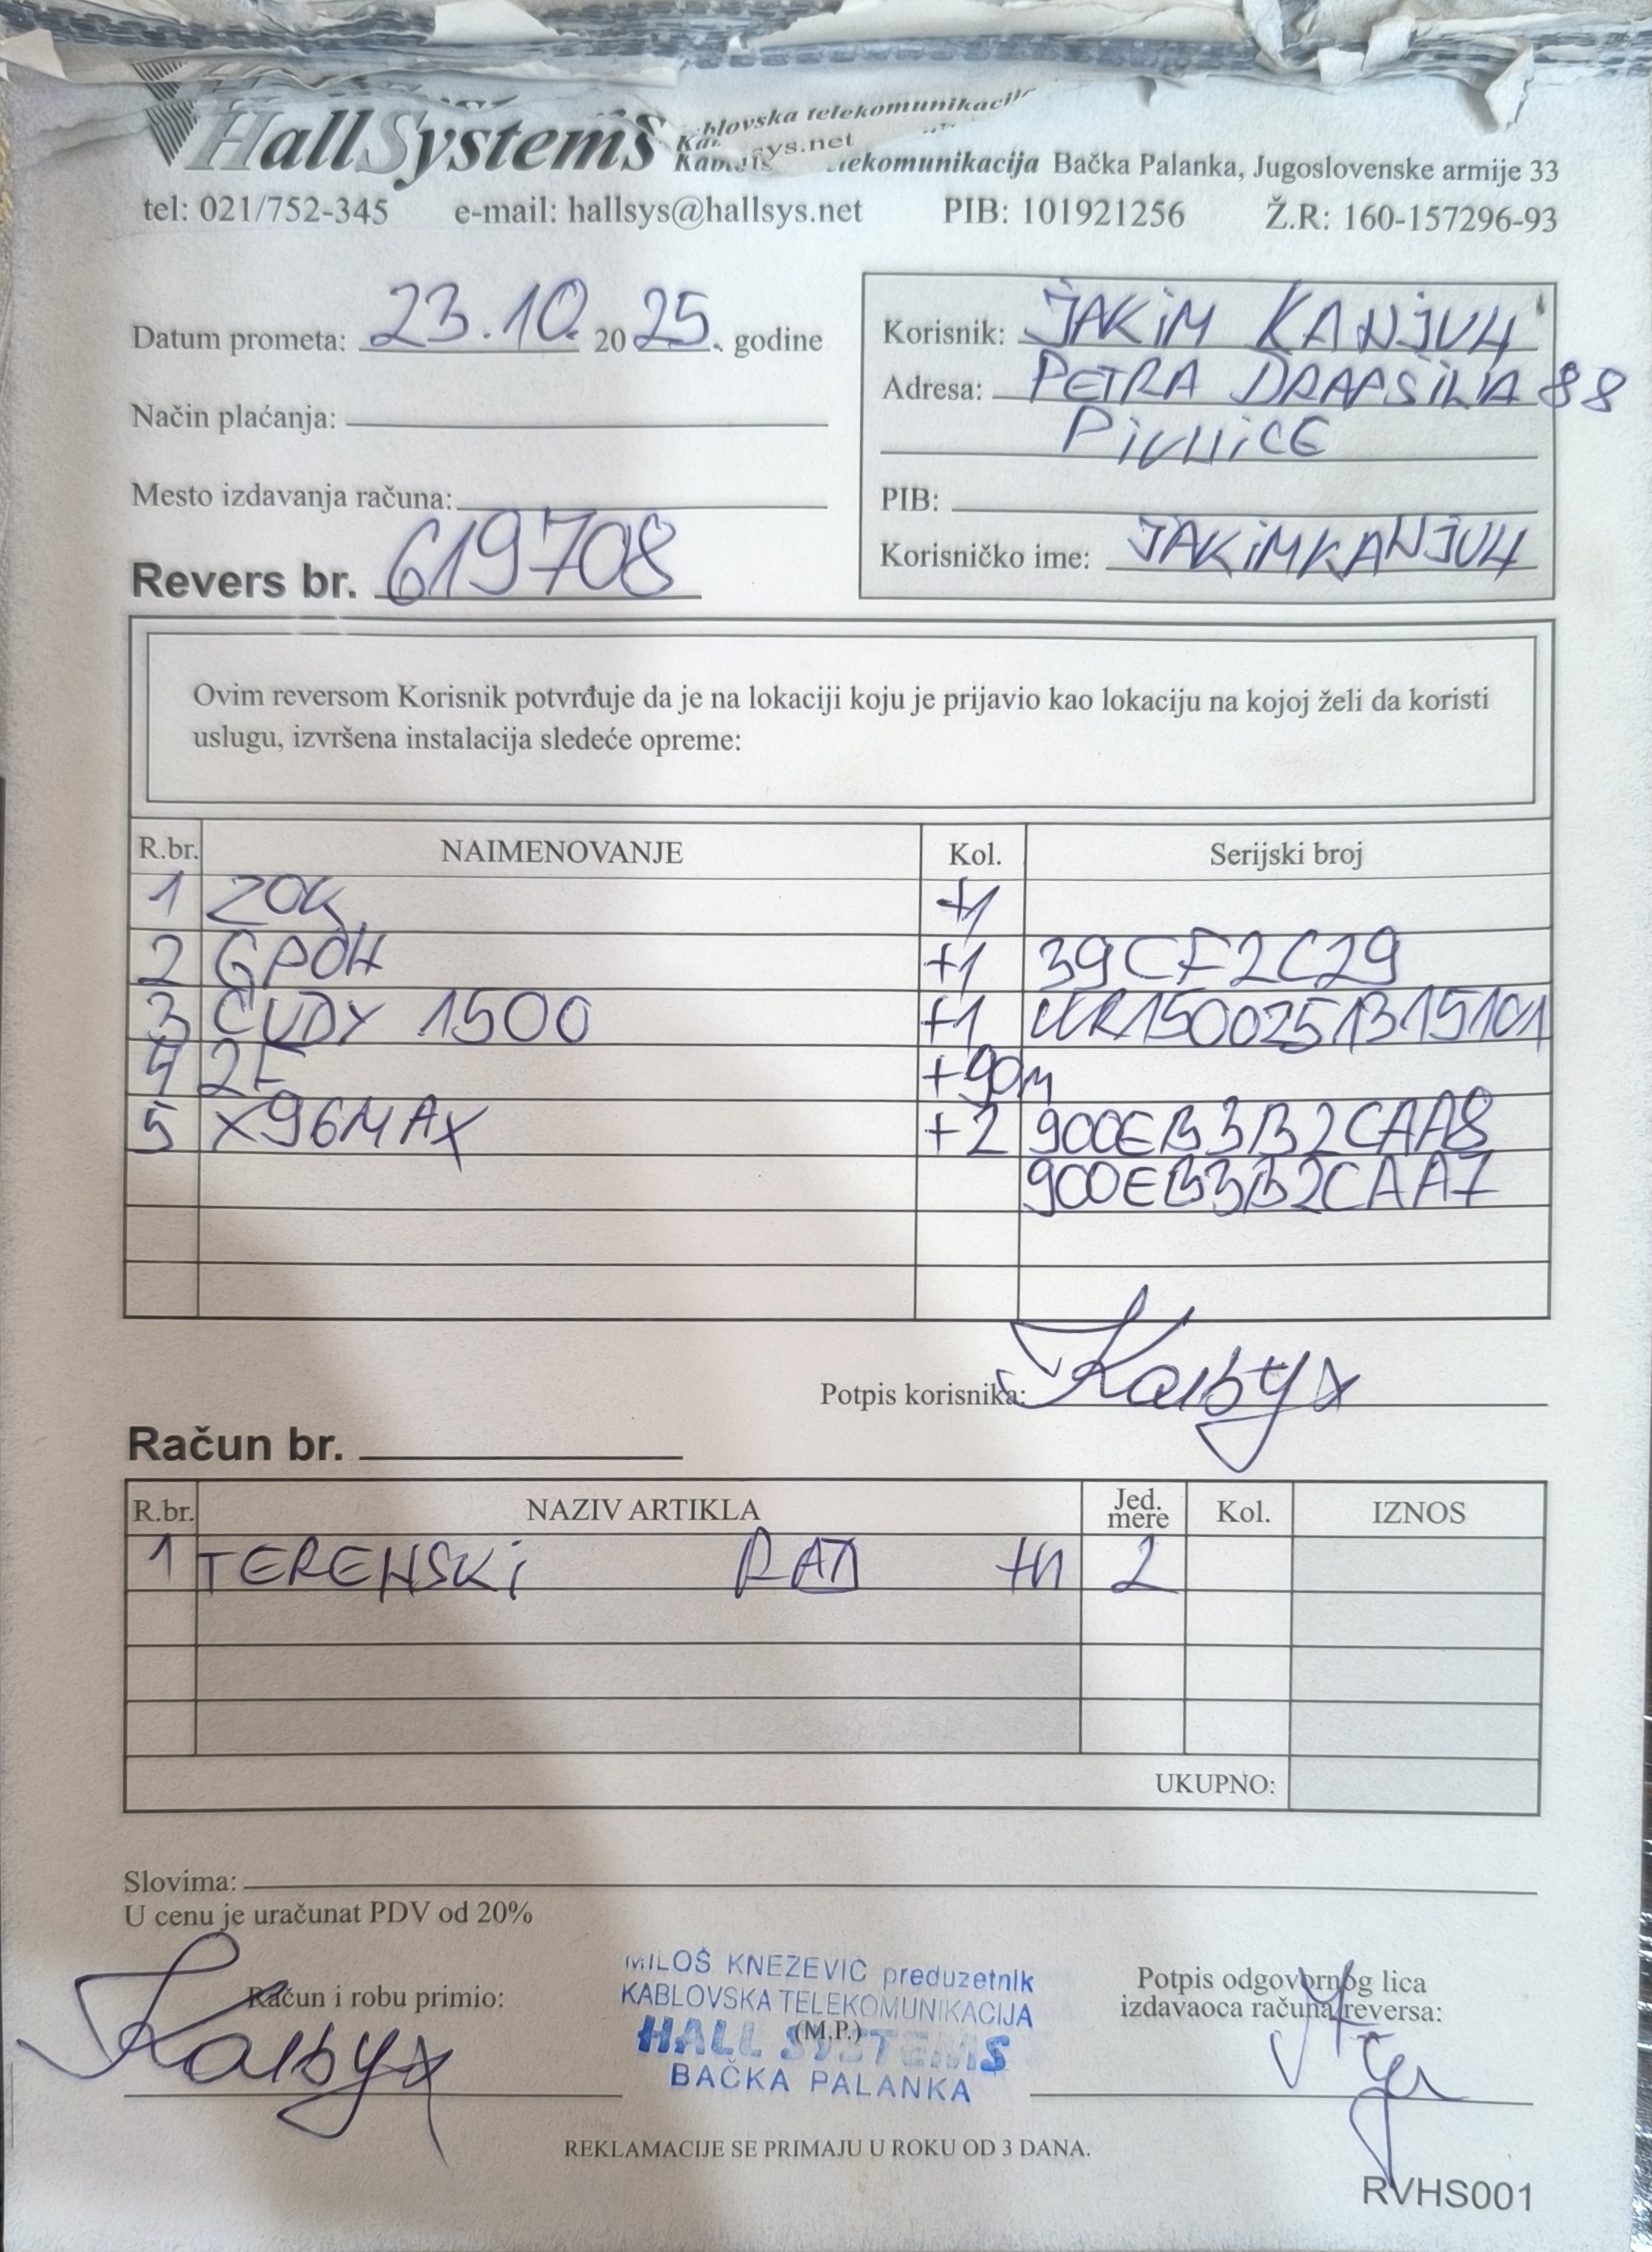 HallSystems Kablovska telekomunikacija Bačka Palanka, Jugoslovenske armije 33
tel: 021/752-345 e-mail: hallsys@hallsys.net PIB: 101921256 Ž.R: 160-157296-93
Datum prometa: 23.10. 2025. godine
Način plaćanja:
Mesto izdavanja računa:
Revers br. 619708
Korisnik: JAKIM KANJUH
Adresa: PETRA DRAPŠINA 88
PIVNICE
PIB:
Korisničko ime: JAKIMKANJUH
Ovim reversom Korisnik potvrđuje da je na lokaciji koju je prijavio kao lokaciju na kojoj želi da koristi
uslugu, izvršena instalacija sledeće opreme:
R.br. NAIMENOVANJE Kol. Serijski broj
1 ZOK +1
2 GPON +1 39CF2C29
3 CUDY 1500 +1 WR1500251315101
4 2F +90m
5 X96MAX +2 900EB3B2CAA8
900EB3B2CAA7
Potpis korisnika:
Račun br.
R.br. NAZIV ARTIKLA Jed. mere Kol. IZNOS
1 TERENSKI RAD +H 2
UKUPNO:
Slovima:
U cenu je uračunat PDV od 20%
Račun i robu primio:
MILOŠ KNEŽEVIĆ preduzetnik
KABLOVSKA TELEKOMUNIKACIJA
(M.P.)
HALL SYSTEMS
BAČKA PALANKA
Potpis odgovornog lica
izdavaoca računa/reversa:
REKLAMACIJE SE PRIMAJU U ROKU OD 3 DANA.
RVHS001